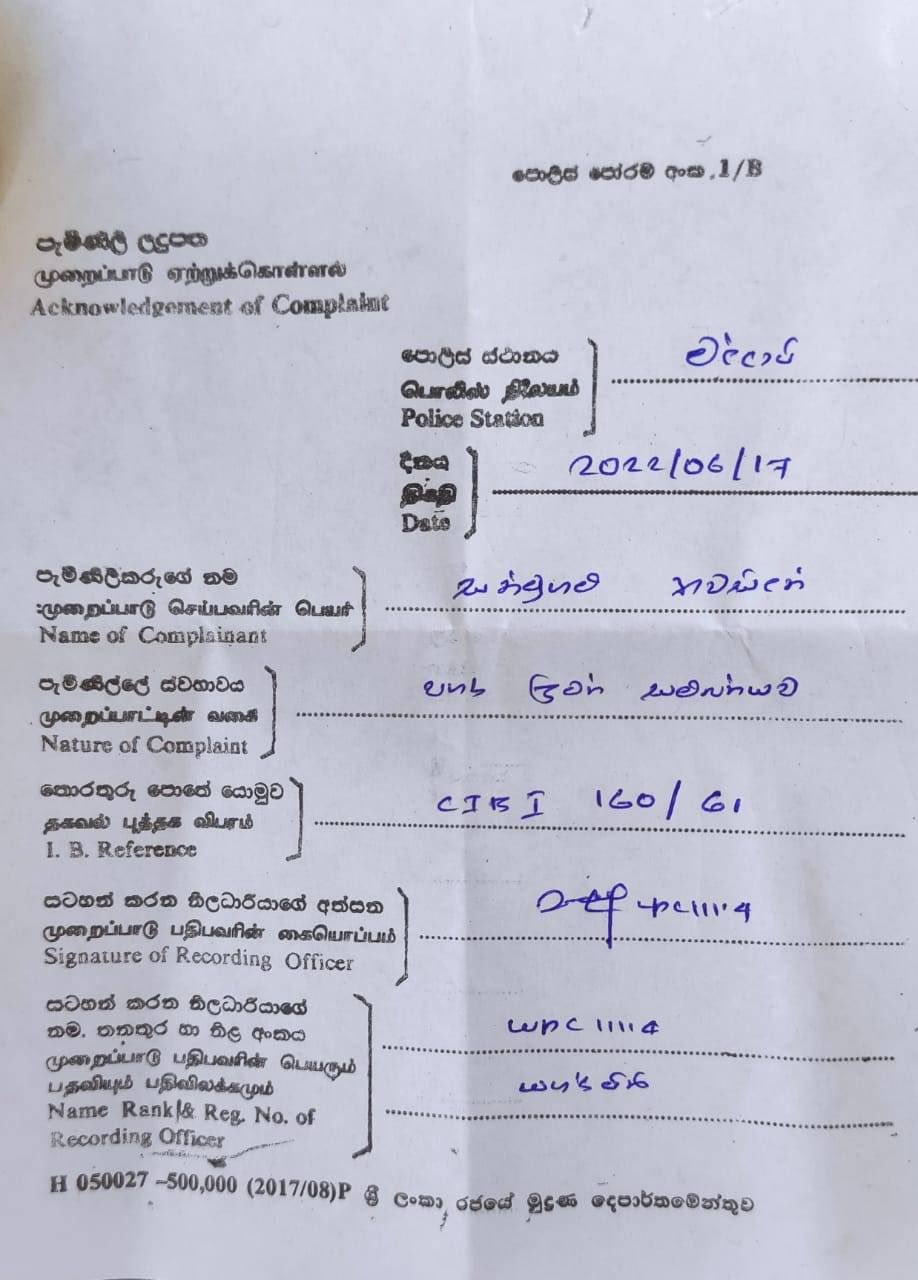 පොලිස් පෝරම අංක 1/B
පැමිණිලි ලදුපත
முறைப்பாடு ஏற்றுக்கொள்ளல்
Acknowledgement of Complaint
පොලිස් ස්ථානය
பொலிஸ் நிலையம்
Police Station
දිනය
திகதி
Date
2022/06/17
පැමිණිලිකරුගේ නම
முறைப்பாடு செய்பவரின் பெயர்
Name of Complainant
පැමිණිල්ලේ ස්වභාවය
முறைப்பாட்டின் வகை
Nature of Complaint
තොරතුරු පොතේ යොමුව
தகவல் புத்தக விபரம்
I. B. Reference
CIB I 160/61
සටහන් කරන නිලධාරියාගේ අත්සන
முறைப்பாடு பதிபவரின் கையொப்பம்
Signature of Recording Officer
සටහන් කරන නිලධාරියාගේ
නම, තනතුර හා නිල අංකය
முறைப்பாடு பதிபவரின் பெயரும்
பதவியும் பதிவிலக்கமும்
Name Rank & Reg. No. of
Recording Officer
WPC 11114
H 050027 –500,000 (2017/08)P ශ්‍රී ලංකා රජයේ මුද්‍රණ දෙපාර්තමේන්තුව